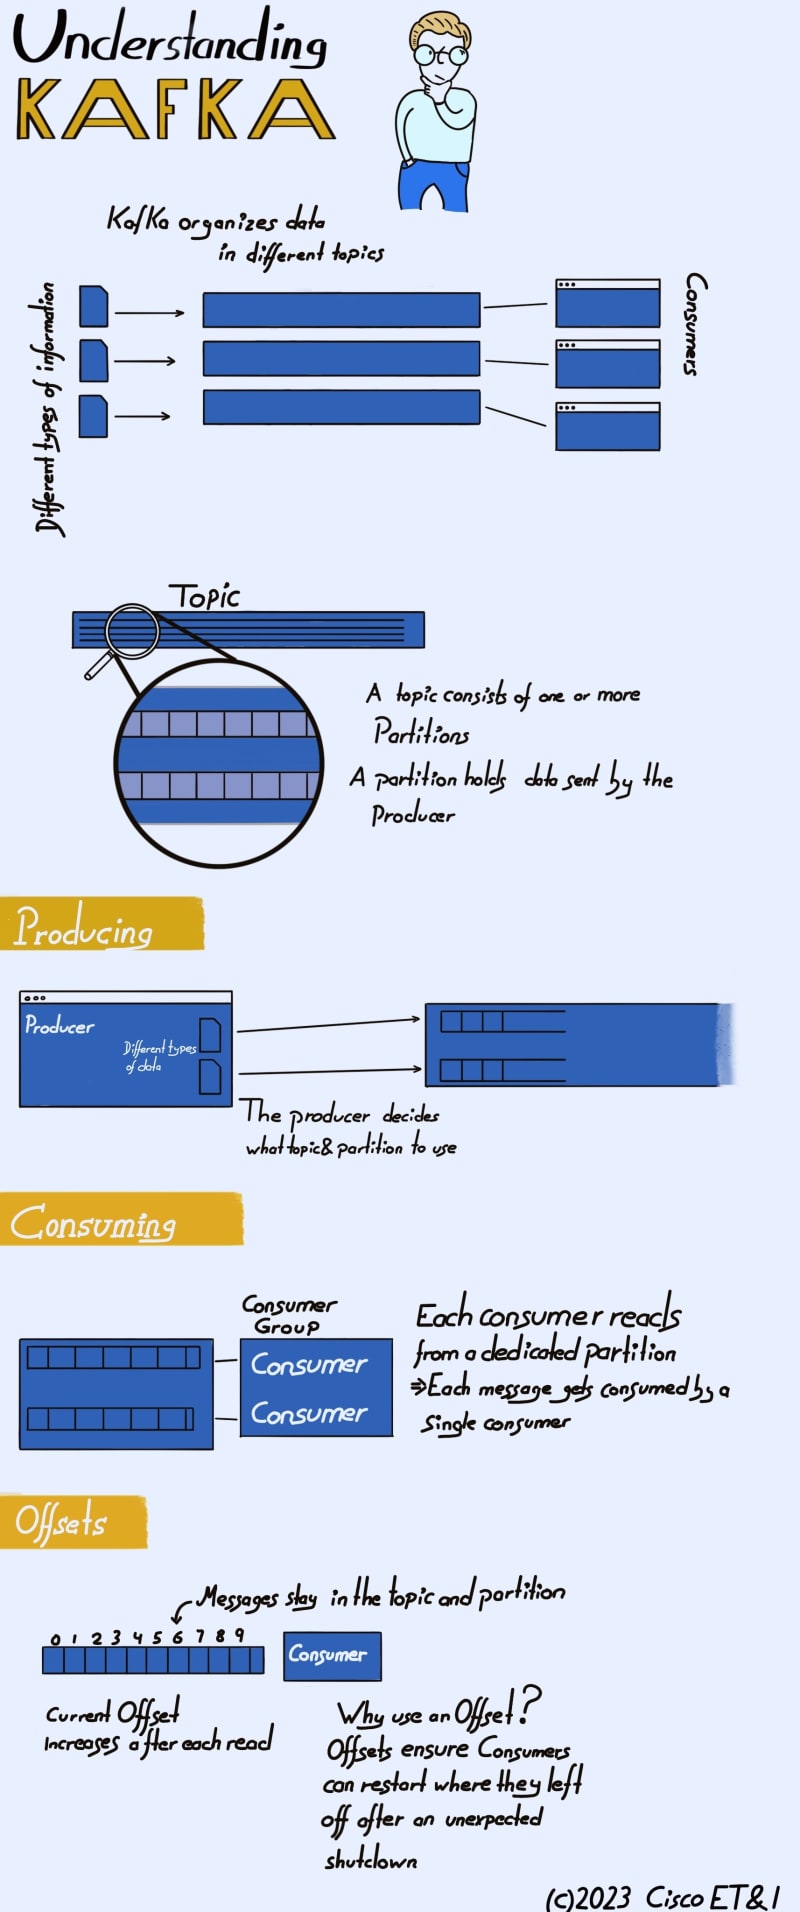 Understanding
KAFKA
Kafka organizes data
in different topics
Different types of information
Consumers
Topic
A topic consists of one or more
Partitions
A partition holds data sent by the
Producer
Producing
Producer
Different types
of data
The producer decides
what topic & partition to use
Consuming
Consumer
Group
Consumer
Consumer
Each consumer reads
from a dedicated partition
⇒ Each message gets consumed by a
single consumer
Offsets
Messages stay in the topic and partition
0 1 2 3 4 5 6 7 8 9
Consumer
Current Offset
Increases after each read
Why use an Offset?
Offsets ensure Consumers
can restart where they left
off after an unexpected
shutdown
(c)2023 Cisco ET&I